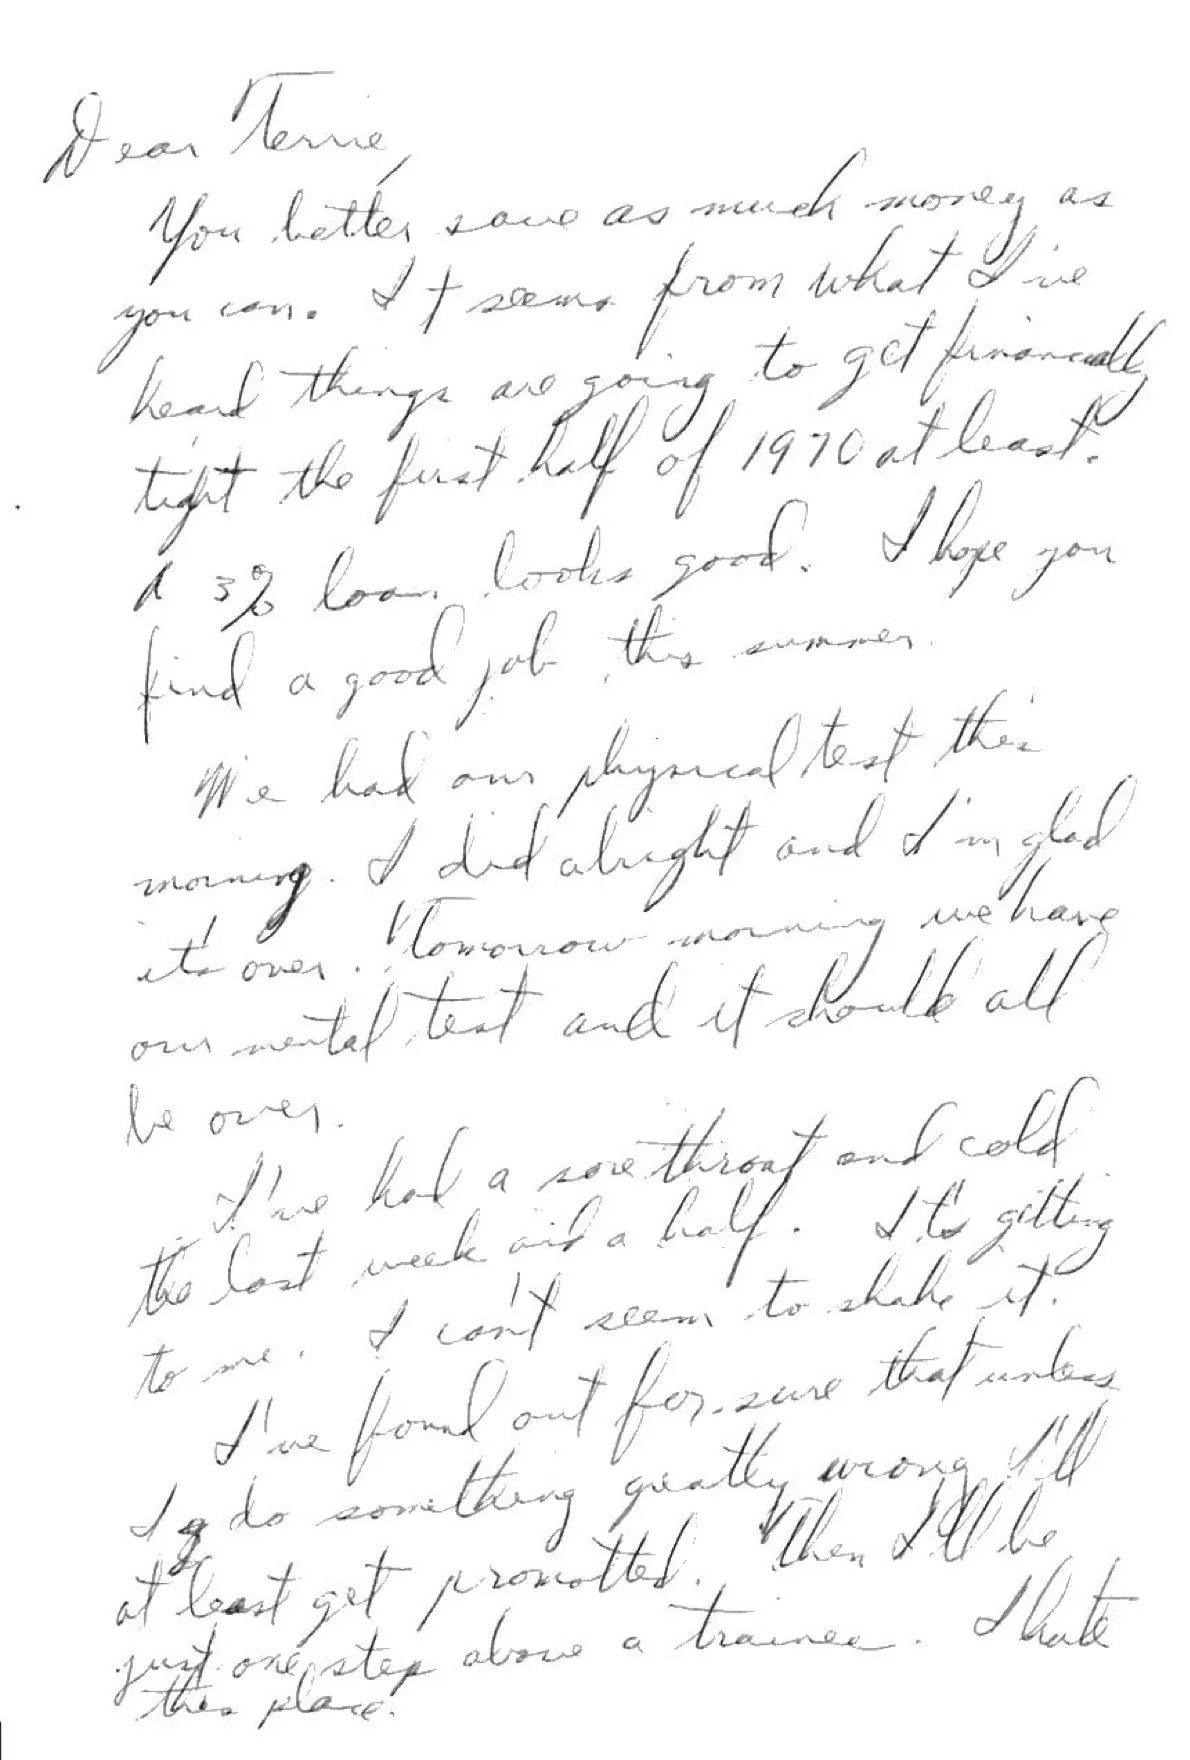 Dear Terrie,
You better save as much money as
you can. It seems from what I've
heard things are going to get financially
tight the first half of 1970 at least.
A 3% loan looks good. I hope you
find a good job this summer.
We had our physical test this
morning. I did alright and I'm glad
it's over. Tomorrow morning we have
our mental test and it should all
be over.
I've had a sore throat and cold
the last week and a half. It's getting
to me. I can't seem to shake it.
I've found out for sure that unless
I do something greatly wrong I'll
at least get promotted. Then I'll be
just one step above a trainee. I hate
this place.